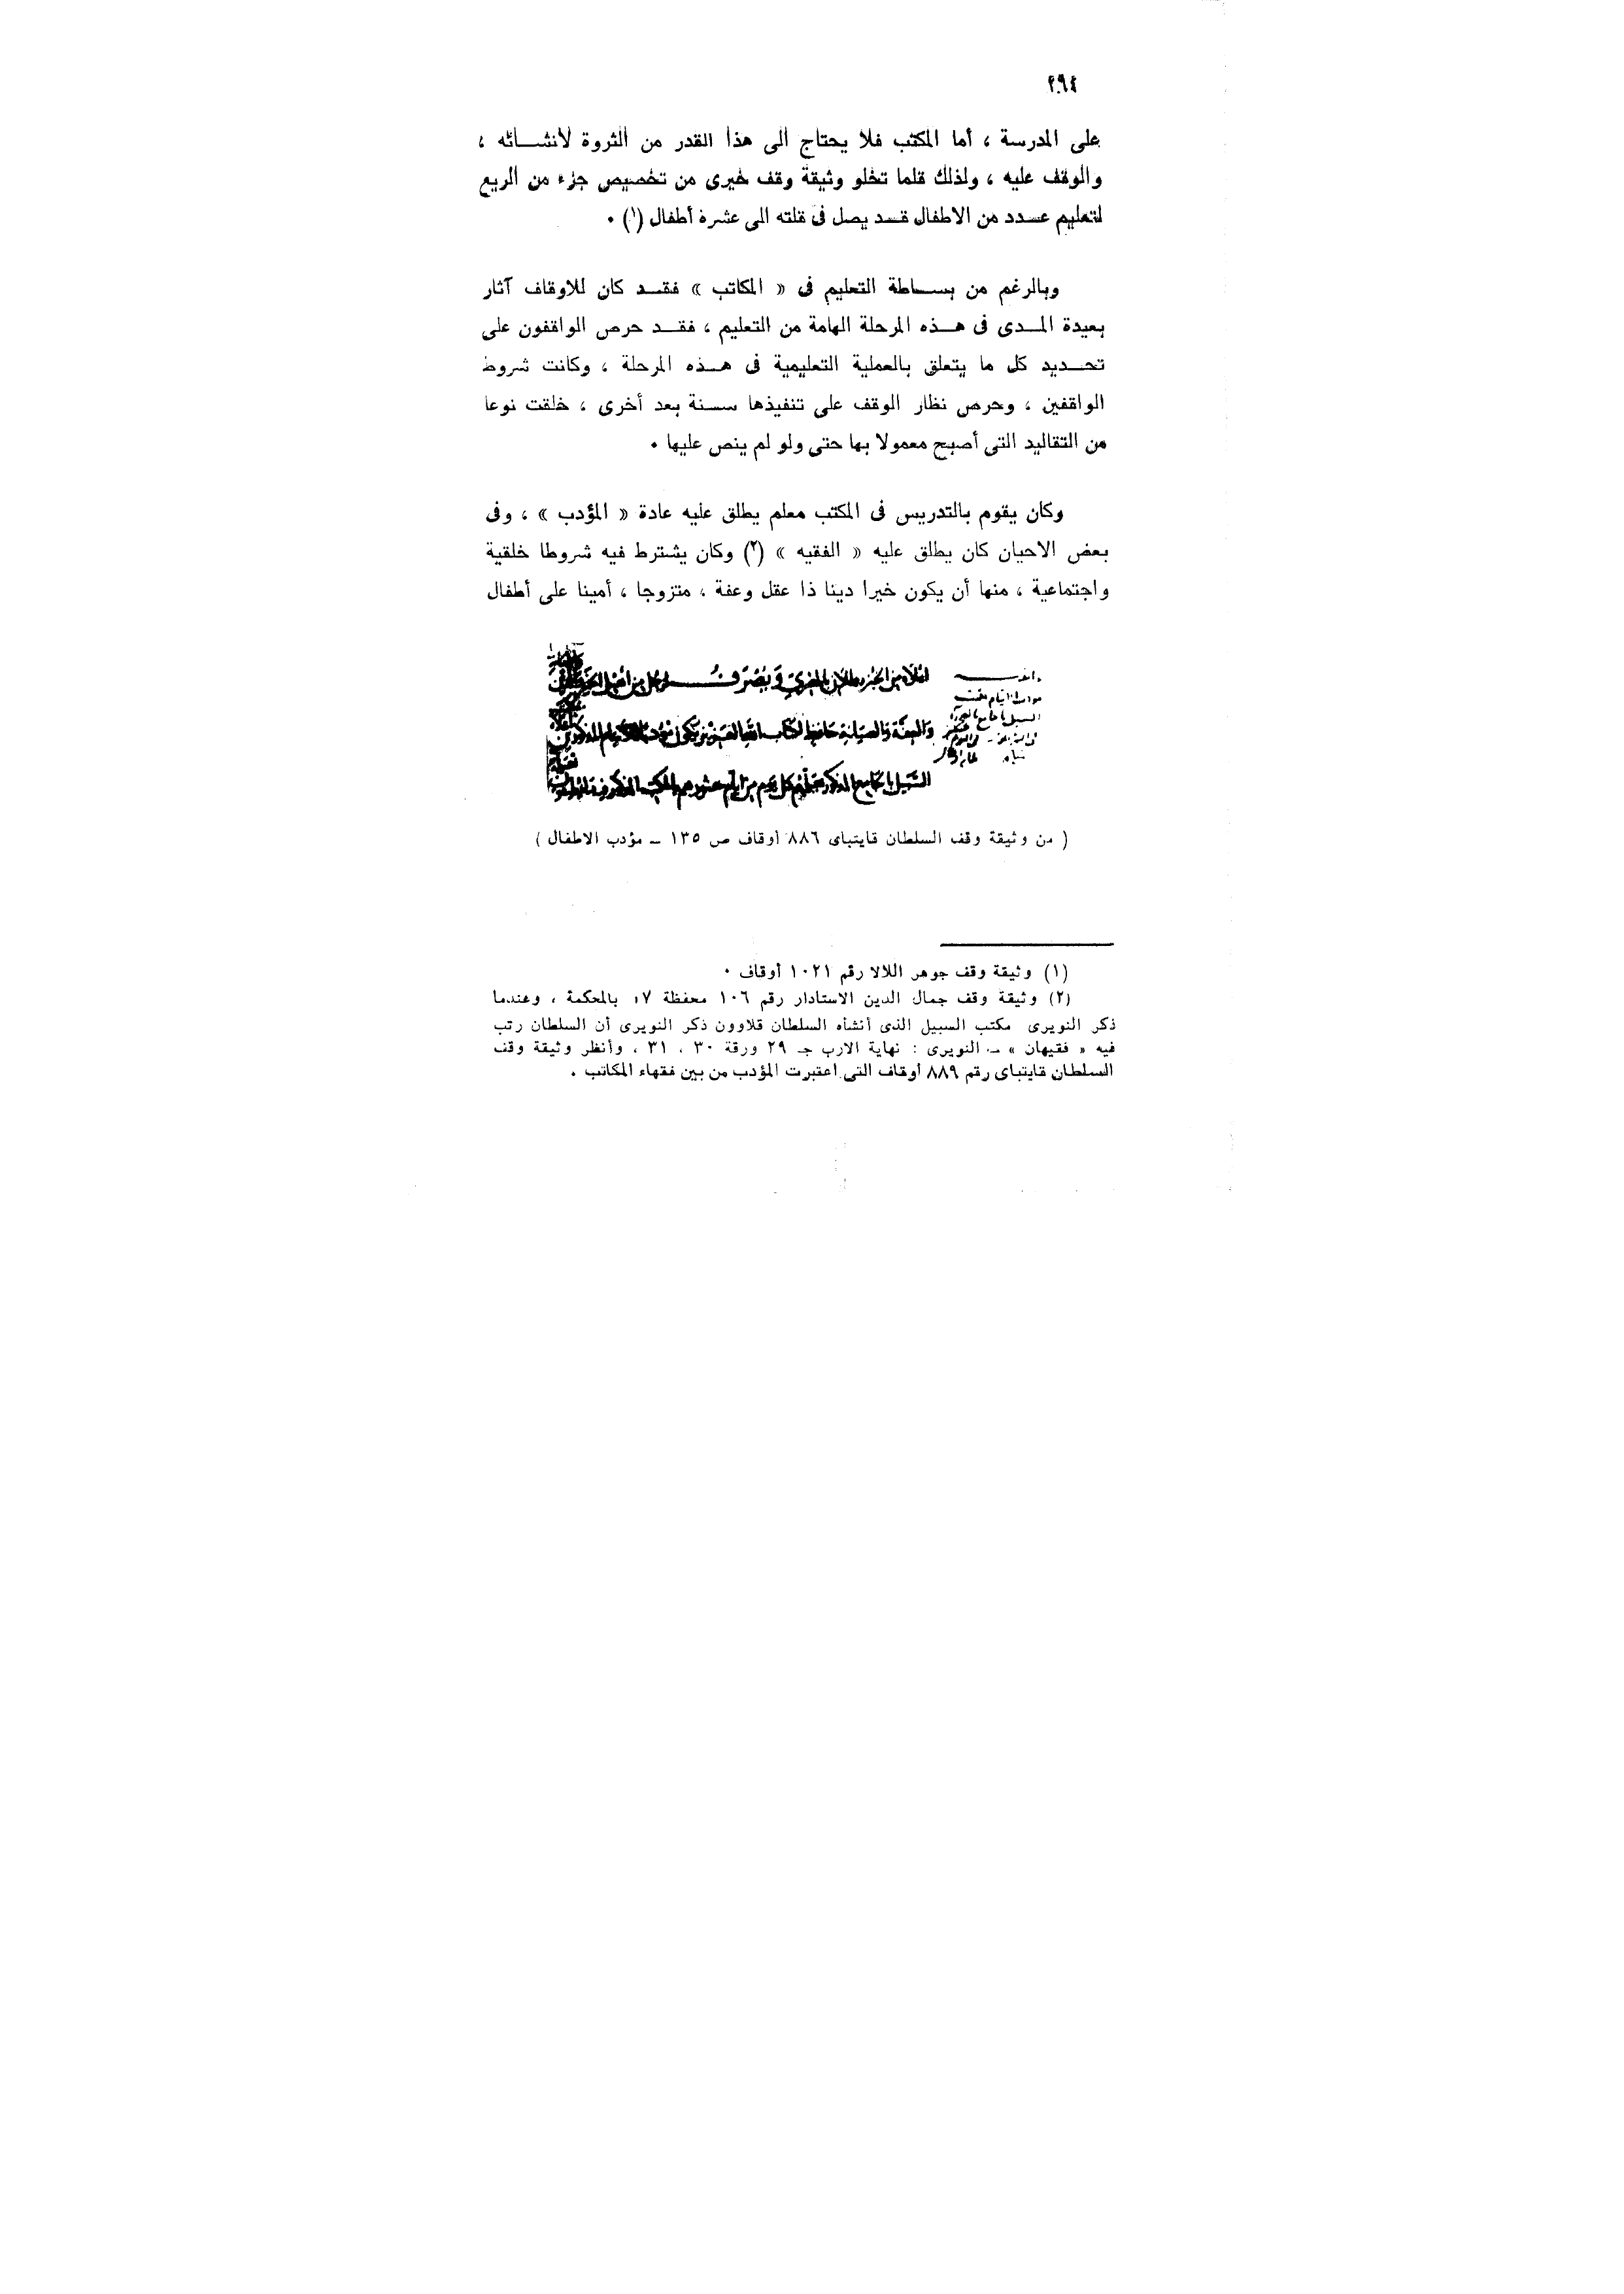 ٢٩٤
على المدرسة ، أما المكتب فلا يحتاج الى هذا القدر من الثروة لانشــائه ،
والوقف عليه ، ولذلك قلما تخلو وثيقة وقف خيرى من تخصيص جزء من الريع
لتعليم عــدد من الاطفال قــد يصل فى قلته الى عشرة أطفال (١) ٠
وبالرغم من بســاطة التعليم فى « المكاتب » فقــد كان للاوقاف آثار
بعيدة المــدى فى هــذه المرحلة الهامة من التعليم ، فقــد حرص الواقفون على
تحــديد كل ما يتعلق بالعملية التعليمية فى هــذه المرحلة ، وكانت شروط
الواقفين ، وحرص نظار الوقف على تنفيذها سنة بعد أخرى ، خلقت نوعا
من التقاليد التى أصبح معمولا بها حتى ولو لم ينص عليها ٠
وكان يقوم بالتدريس فى المكتب معلم يطلق عليه عادة « المؤدب » ، وفى
بعض الاحيان كان يطلق عليه « الفقيه » (٢) وكان يشترط فيه شروطا خلقية
واجتماعية ، منها أن يكون خيرا دينا ذا عقل وعفة ، متزوجا ، أمينا على أطفال
ويصرف لرجل من أهل الخير
والعفة والصيانة حافظ لكتاب الله العزيز يكون مؤدب الأيتام المذكورين
السبيل بالجامع المذكور كل يوم من أيام
( من وثيقة وقف السلطان قايتباى ٨٨٦ أوقاف ص ١٣٥ ــ مؤدب الاطفال )
(١) وثيقة وقف جوهر اللالا رقم ١٠٢١ أوقاف ٠
(٢) وثيقة وقف جمال الدين الاستادار رقم ١٠٦ محفظة ١٧ بالمحكمة ، وعندما
ذكر النويرى مكتب السبيل الذى أنشأه السلطان قلاوون ذكر النويرى أن السلطان رتب
فيه « فقيهان » ــ النويرى : نهاية الارب جـ ٢٩ ورقة ٣٠ ، ٣١ ، وأنظر وثيقة وقف
السلطان قايتباى رقم ٨٨٩ أوقاف التى اعتبرت المؤدب من بين فقهاء المكاتب ٠